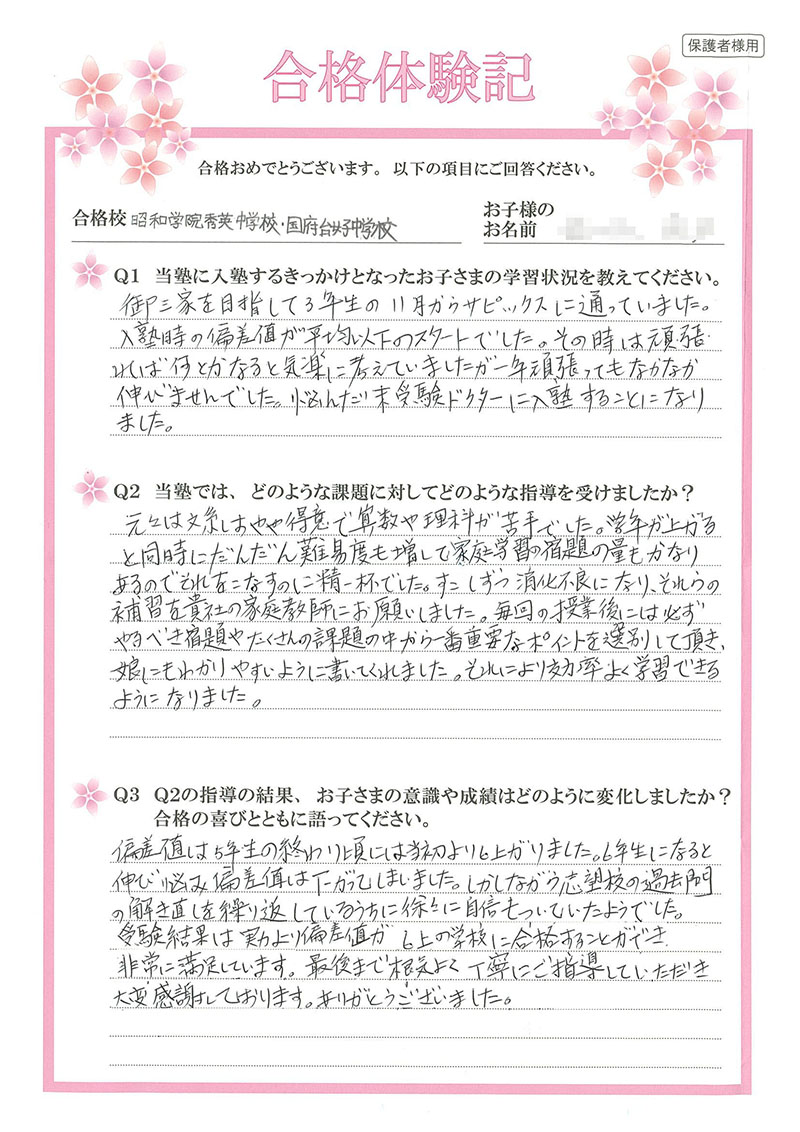 保護者様用
合格体験記
合格おめでとうございます。 以下の項目にご回答ください。
合格校 昭和学院秀英中学校・国府台女子中学校
お子様の
お名前
Q1 当塾に入塾するきっかけとなったお子さまの学習状況を教えてください。
御三家を目指して3年生の11月からサピックスに通っていました。
入塾時の偏差値が平均以下のスタートでした。その時は頑張
れば何とかなると気楽に考えていましたが一年頑張ってもなかなか
伸びませんでした。悩んだ末受験ドクターに入塾することになり
ました。
Q2 当塾では、どのような課題に対してどのような指導を受けましたか？
元々は文系しかやや得意で算数や理科が苦手でした。学年が上がる
と同時にだんだん難易度も増して家庭学習の宿題の量もかなり
あるのでそれをこなすのに精一杯でした。すこしずつ消化不良になり、それらの
補習を貴社の家庭教師にお願いしました。毎回の授業後には必ず
やるべき宿題やたくさんの課題の中から一番重要なポイントを選別して頂き、
娘にもわかりやすいように書いてくれました。それにより効率よく学習できる
ようになりました。
Q3 Q2の指導の結果、 お子さまの意識や成績はどのように変化しましたか？
合格の喜びとともに語ってください。
偏差値は5年生の終わり頃には当初より6上がりました。6年生になると
伸び悩み偏差値は下がってしまいました。しかしながら志望校の過去問
の解き直しを繰り返しているうちに徐々に自信もついていたようでした。
受験結果は実力より偏差値が6上の学校に合格することができ
非常に満足しています。最後まで根気よく丁寧にご指導していただき
大変感謝しております。ありがとうございました。